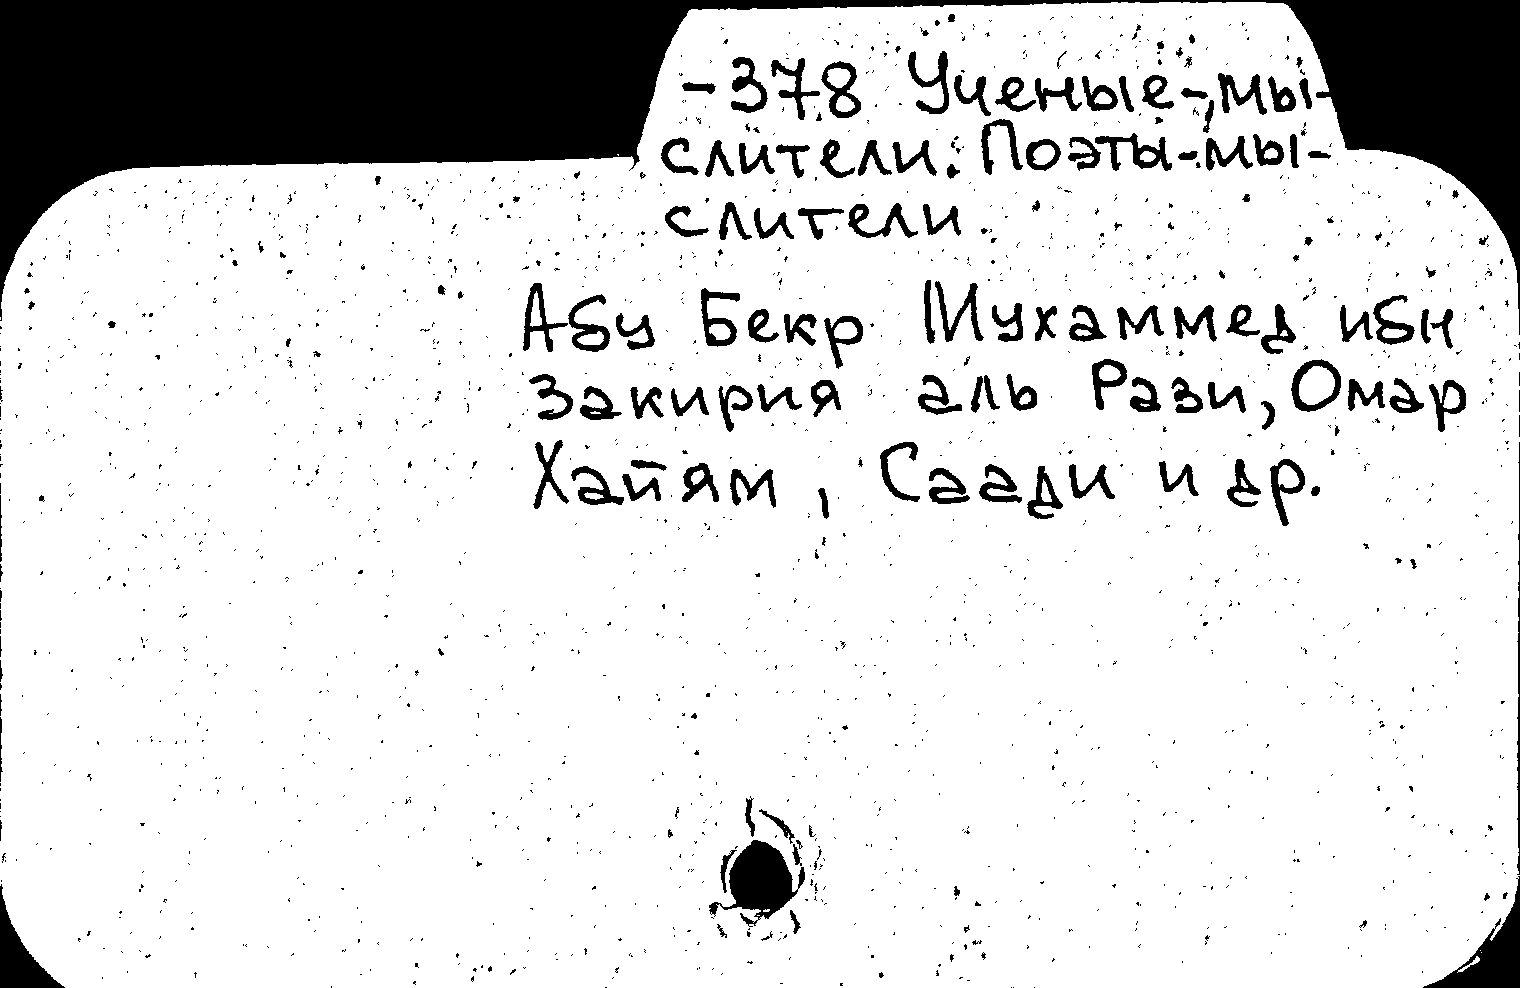 -378 Ученые-мы-
слители. Поэты-мы-
слители.
Абу Бекр Мухаммед ибн
Закирия аль Рази, Омар
Хайям, Саади и др.